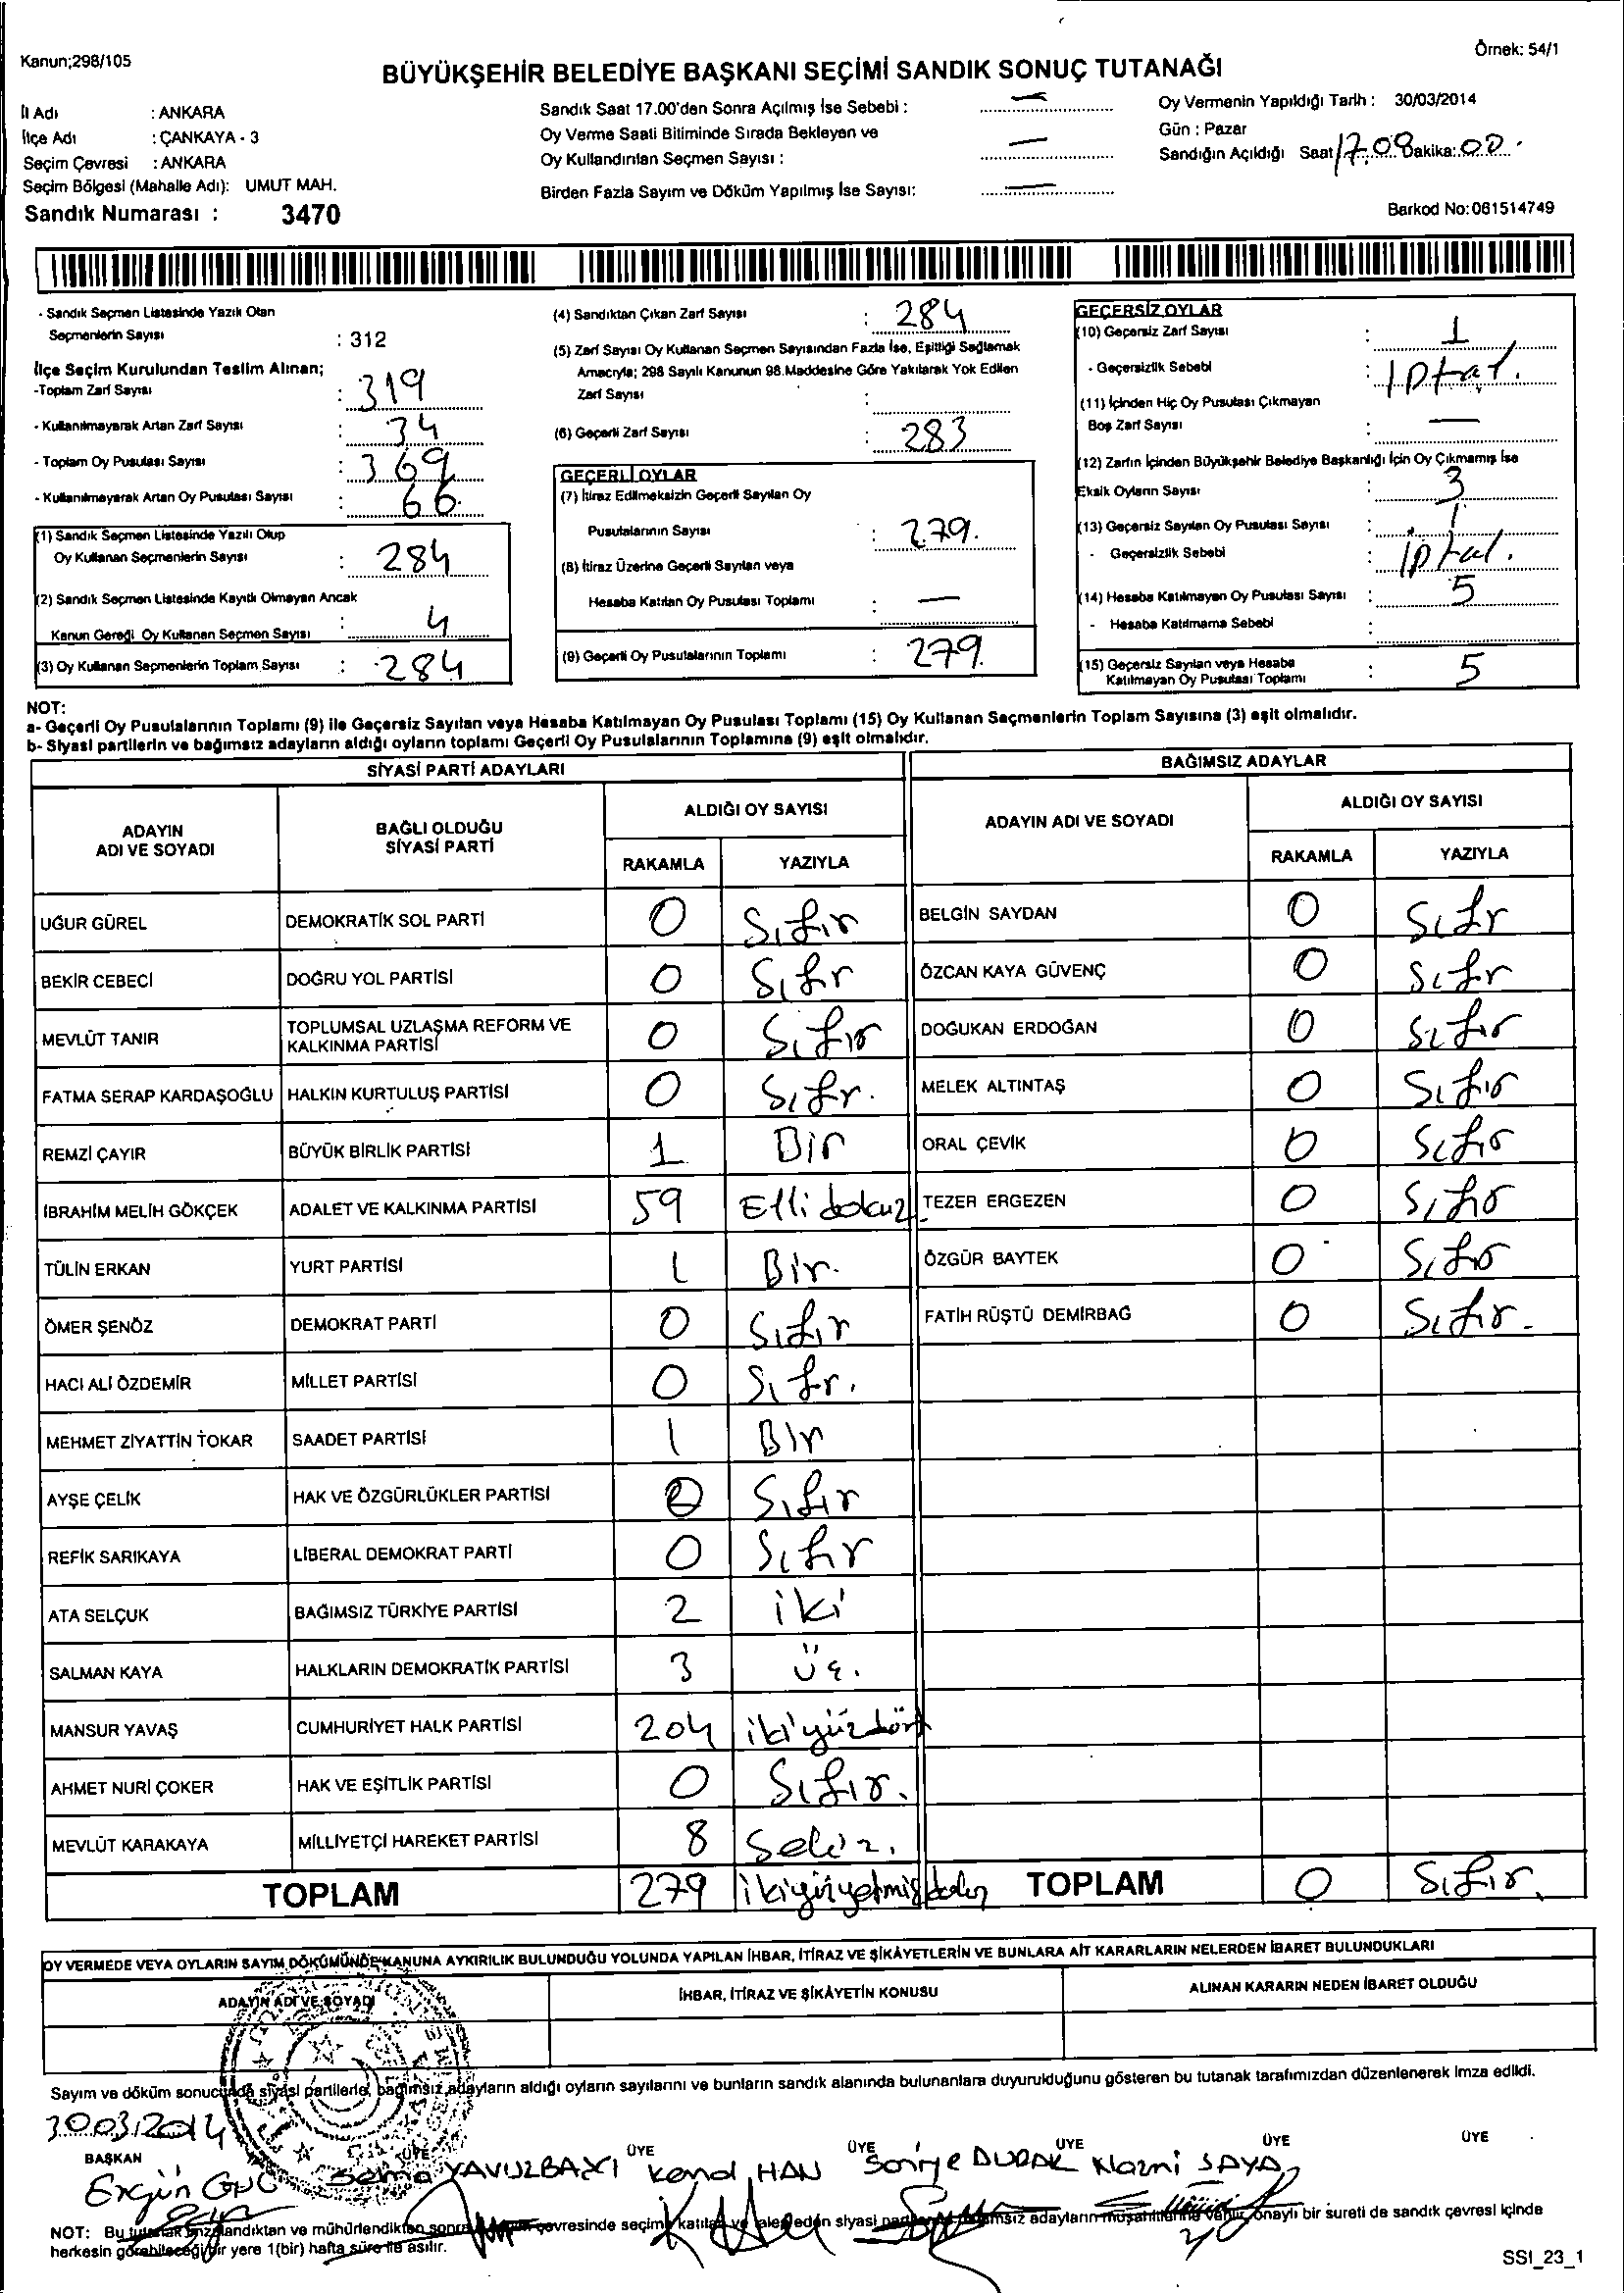 Kanun;298/105
Örnek: 54/1
BÜYÜKŞEHİR BELEDİYE BAŞKANI SEÇİMİ SANDIK SONUÇ TUTANAĞI
İl Adı : ANKARA
İlçe Adı : ÇANKAYA - 3
Seçim Çevresi : ANKARA
Seçim Bölgesi (Mahalle Adı): UMUT MAH.
Sandık Numarası : 3470
Sandık Saat 17.00'den Sonra Açılmış İse Sebebi : —
Oy Verme Saati Bitiminde Sırada Bekleyen ve
Oy Kullandırılan Seçmen Sayısı : —
Birden Fazla Sayım ve Döküm Yapılmış İse Sayısı: —
Oy Vermenin Yapıldığı Tarih : 30/03/2014
Gün : Pazar
Sandığın Açıldığı Saat 17.08 Dakika: 00
Barkod No:061514749
- Sandık Seçmen Listesinde Yazılı Olan
Seçmenlerin Sayısı : 312
İlçe Seçim Kurulundan Teslim Alınan;
-Toplam Zarf Sayısı : 319
- Kullanılmayarak Artan Zarf Sayısı : 34
- Toplam Oy Pusulası Sayısı : 369
- Kullanılmayarak Artan Oy Pusulası Sayısı : 66
(1) Sandık Seçmen Listesinde Yazılı Olup
Oy Kullanan Seçmenlerin Sayısı : 284
(2) Sandık Seçmen Listesinde Kayıtlı Olmayan Ancak
Kanun Gereği Oy Kullanan Seçmen Sayısı : 4
(3) Oy Kullanan Seçmenlerin Toplam Sayısı : 284
(4) Sandıktan Çıkan Zarf Sayısı : 284
(5) Zarf Sayısı Oy Kullanan Seçmen Sayısından Fazla İse, Eşitliği Sağlamak
Amacıyla; 298 Sayılı Kanunun 98.Maddesine Göre Yakılarak Yok Edilen
Zarf Sayısı :
(6) Geçerli Zarf Sayısı : 283
GEÇERLİ OYLAR
(7) İtiraz Edilmeksizin Geçerli Sayılan Oy
Pusulalarının Sayısı : 279.
(8) İtiraz Üzerine Geçerli Sayılan veya
Hesaba Katılan Oy Pusulası Toplamı : —
(9) Geçerli Oy Pusulalarının Toplamı : 279.
GEÇERSİZ OYLAR
(10) Geçersiz Zarf Sayısı : 1
- Geçersizlik Sebebi : İptal.
(11) İçinden Hiç Oy Pusulası Çıkmayan
Boş Zarf Sayısı : —
(12) Zarfın İçinden Büyükşehir Belediye Başkanlığı İçin Oy Çıkmamış İse
Eksik Oyların Sayısı : 3
(13) Geçersiz Sayılan Oy Pusulası Sayısı : 1
- Geçersizlik Sebebi : iptal.
(14) Hesaba Katılmayan Oy Pusulası Sayısı : 5
- Hesaba Katılmama Sebebi :
(15) Geçersiz Sayılan veya Hesaba
Katılmayan Oy Pusulası Toplamı : 5
NOT:
a- Geçerli Oy Pusulalarının Toplamı (9) ile Geçersiz Sayılan veya Hesaba Katılmayan Oy Pusulası Toplamı (15) Oy Kullanan Seçmenlerin Toplam Sayısına (3) eşit olmalıdır.
b- Siyasi partilerin ve bağımsız adayların aldığı oyların toplamı Geçerli Oy Pusulalarının Toplamına (9) eşit olmalıdır.
SİYASİ PARTİ ADAYLARI
ADAYIN ADI VE SOYADI
BAĞLI OLDUĞU SİYASİ PARTİ
ALDIĞI OY SAYISI
RAKAMLA YAZIYLA
UĞUR GÜREL DEMOKRATİK SOL PARTİ 0 Sıfır
BEKİR CEBECİ DOĞRU YOL PARTİSİ 0 Sıfır
MEVLÜT TANIR TOPLUMSAL UZLAŞMA REFORM VE
KALKINMA PARTİSİ 0 Sıfır
FATMA SERAP KARDAŞOĞLU HALKIN KURTULUŞ PARTİSİ 0 Sıfır.
REMZİ ÇAYIR BÜYÜK BİRLİK PARTİSİ 1 Bir
İBRAHİM MELİH GÖKÇEK ADALET VE KALKINMA PARTİSİ 59 Elli dokuz
TÜLİN ERKAN YURT PARTİSİ 1 Bir.
ÖMER ŞENÖZ DEMOKRAT PARTİ 0 Sıfır
HACI ALİ ÖZDEMİR MİLLET PARTİSİ 0 Sıfır.
MEHMET ZİYATTİN TOKAR SAADET PARTİSİ 1 Bir
AYŞE ÇELİK HAK VE ÖZGÜRLÜKLER PARTİSİ 0 Sıfır
REFİK SARIKAYA LİBERAL DEMOKRAT PARTİ 0 Sıfır
ATA SELÇUK BAĞIMSIZ TÜRKİYE PARTİSİ 2 iki
SALMAN KAYA HALKLARIN DEMOKRATİK PARTİSİ 3 üç.
MANSUR YAVAŞ CUMHURİYET HALK PARTİSİ 204 ikiyüzdört
AHMET NURİ ÇOKER HAK VE EŞİTLİK PARTİSİ 0 Sıfır.
MEVLÜT KARAKAYA MİLLİYETÇİ HAREKET PARTİSİ 8 Sekiz.
TOPLAM 279 ikiyüzyetmişdokuz
BAĞIMSIZ ADAYLAR
ADAYIN ADI VE SOYADI
ALDIĞI OY SAYISI
RAKAMLA YAZIYLA
BELGİN SAYDAN 0 Sıfr
ÖZCAN KAYA GÜVENÇ 0 Sıfr
DOĞUKAN ERDOĞAN 0 Sıfır
MELEK ALTINTAŞ 0 Sıfır
ORAL ÇEVİK 0 Sıfır
TEZER ERGEZEN 0 Sıfır
ÖZGÜR BAYTEK 0 Sıfır
FATİH RÜŞTÜ DEMİRBAĞ 0 Sıfır.
TOPLAM 0 Sıfır.
OY VERMEDE VEYA OYLARIN SAYIM DÖKÜMÜNDE KANUNA AYKIRILIK BULUNDUĞU YOLUNDA YAPILAN İHBAR, İTİRAZ VE ŞİKÂYETLERİN VE BUNLARA AİT KARARLARIN NELERDEN İBARET BULUNDUKLARI
ADAYIN ADI VE SOYADI
İHBAR, İTİRAZ VE ŞİKÂYETİN KONUSU
ALINAN KARARIN NEDEN İBARET OLDUĞU
Sayım ve döküm sonucunda siyasi partilerle, bağımsız adayların aldığı oyların sayılarını ve bunların sandık alanında bulunanlara duyurulduğunu gösteren bu tutanak tarafımızdan düzenlenerek imza edildi.
30.03.2014
BAŞKAN ÜYE ÜYE ÜYE ÜYE ÜYE ÜYE
Ergün Sema YAVUZBAXI Kemal HAN Soniye DURAK Nazmi SAYA
NOT: Bu tutanak imzalandıktan ve mühürlendikten sonra çevresinde seçime katılan ve talep eden siyasi bağımsız adayların müşahitlerine verilir, onaylı bir sureti de sandık çevresi içinde
herkesin görebileceği bir yere 1(bir) hafta süre ile asılır.
SSI_23_1